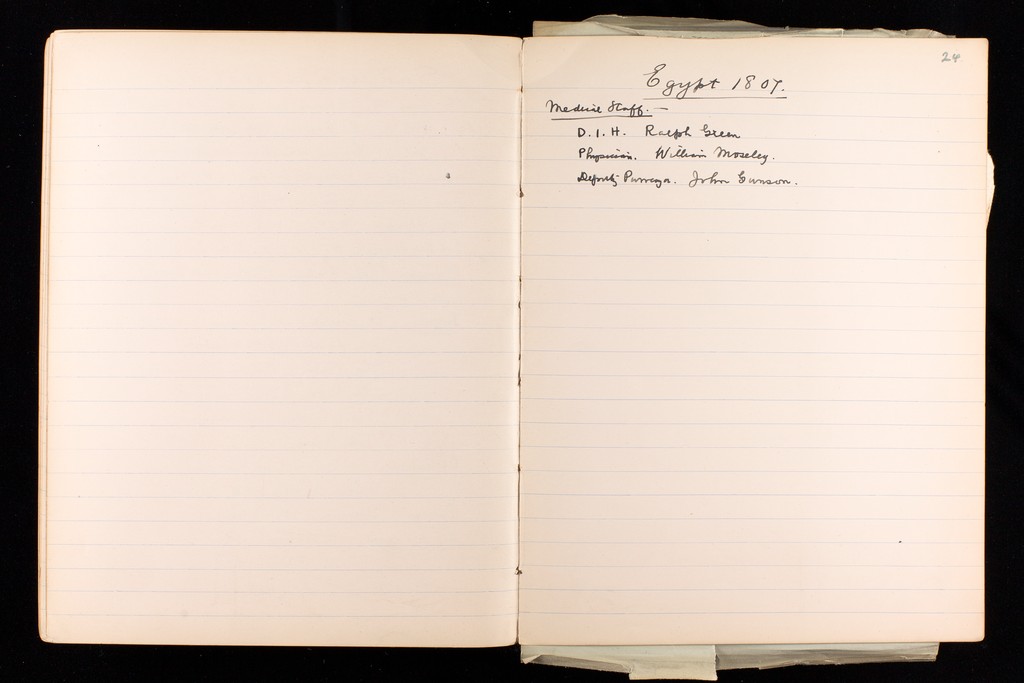 24
Egypt 1807.
Medical Staff. —
D. I. H. Ralph Green
Physician. William Moseley.
Deputy Purveyor. John Gunson.